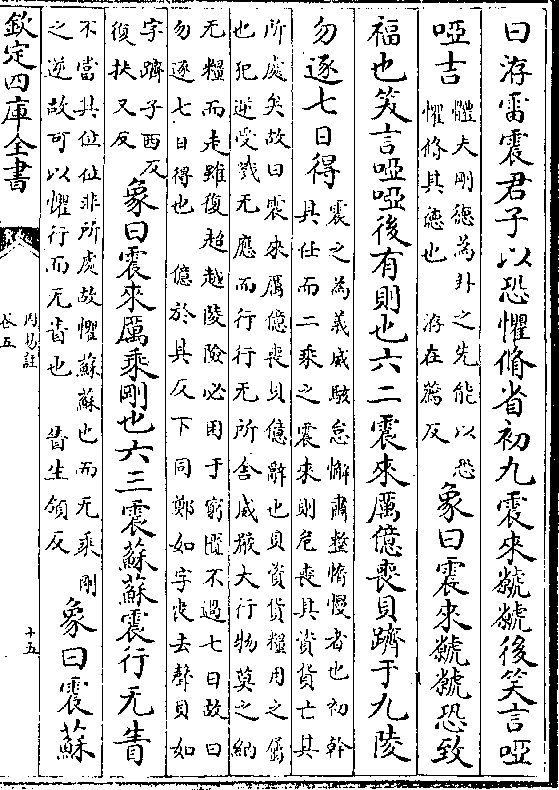 曰洊雷震君子以恐懼脩省初九震來虩虩後笑言啞
啞吉體夫剛德為卦之先能以恐
懼脩其德也　洊在薦反象曰震來虩虩恐致
福也笑言啞啞後有則也六二震來厲億喪貝躋于九陵
勿逐七日得震之為義威駭怠懈肅整惰慢者也初幹
其任而二乗之震來則危喪其資貨亡其
所處矣故曰震來厲億喪貝億辭也貝資貨糧用之屬
也犯逆受戮无應而行行无所舍威嚴大行物莫之納
无糧而走雖復超越陵險必困于窮匱不過七日故曰
勿逐七日得也　億於其反下同鄭如字喪去聲貝如
字躋子西反
復扶又反象曰震來厲乗剛也六三震蘇蘇震行无眚
不當其位位非所處故懼蘇蘇也而无乗剛
之逆故可以懼行而无眚也　眚生領反象曰震蘇
欽定四庫全書
周易註
卷五
十五